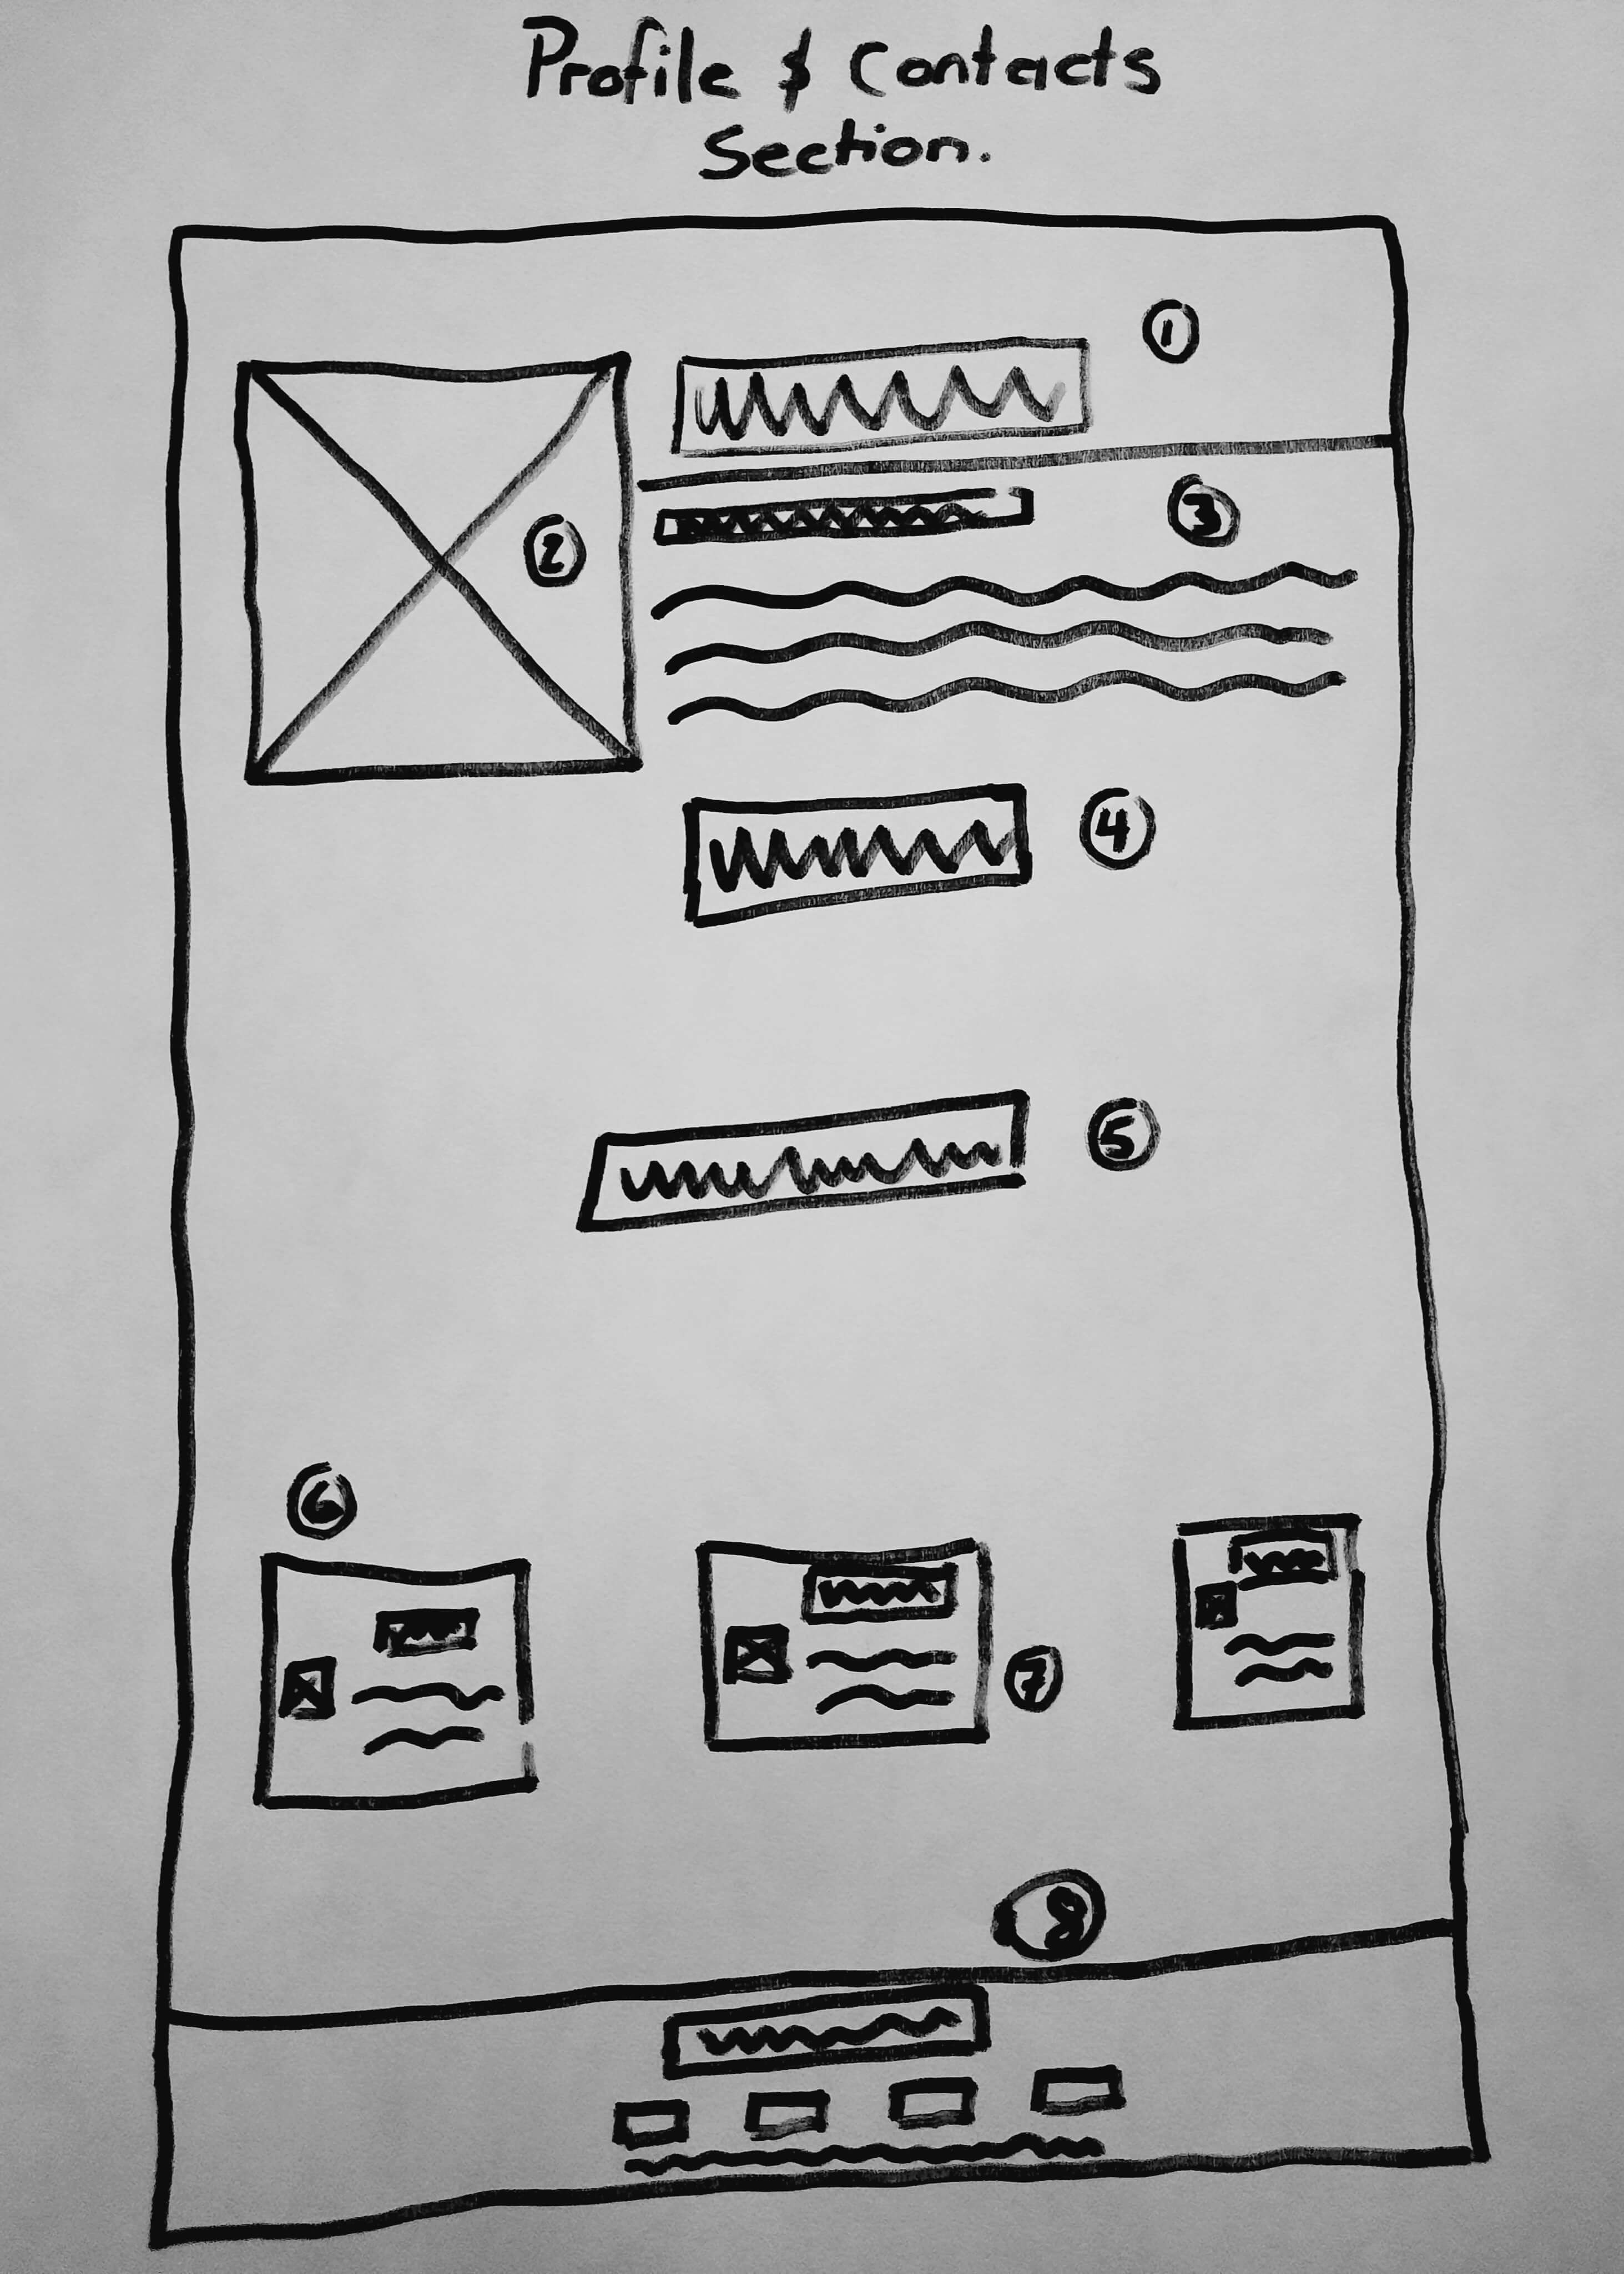 Profile & Contacts
Section.
1
2
3
4
5
6
7
8